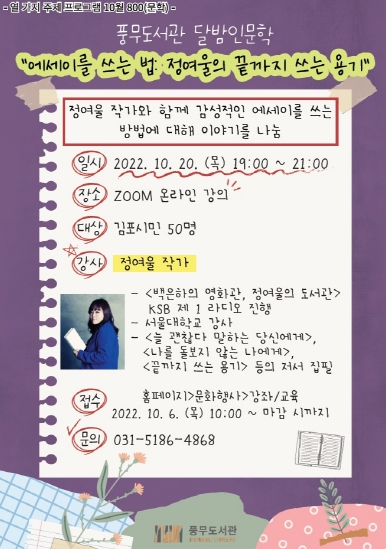 - 열 가지 주제 프로그램 10월 800(문학) -
풍무도서관 달밤인문학
"에세이를 쓰는 법: 정여울의 끝까지 쓰는 용기"
정여울 작가와 함께 감성적인 에세이를 쓰는
방법에 대해 이야기를 나눔
일시 2022. 10. 20. (목) 19:00 ~ 21:00
장소 ZOOM 온라인 강의
대상 김포시민 50명
강사 정여울 작가
- <백은하의 영화관, 정여울의 도서관>
KSB 제 1 라디오 진행
- 서울대학교 강사
- <늘 괜찮다 말하는 당신에게>,
<나를 돌보지 않는 나에게>,
<끝까지 쓰는 용기> 등의 저서 집필
접수 홈페이지>문화행사>강좌/교육
2022. 10. 6. (목) 10:00 ~ 마감 시까지
문의 031-5186-4868
풍무도서관